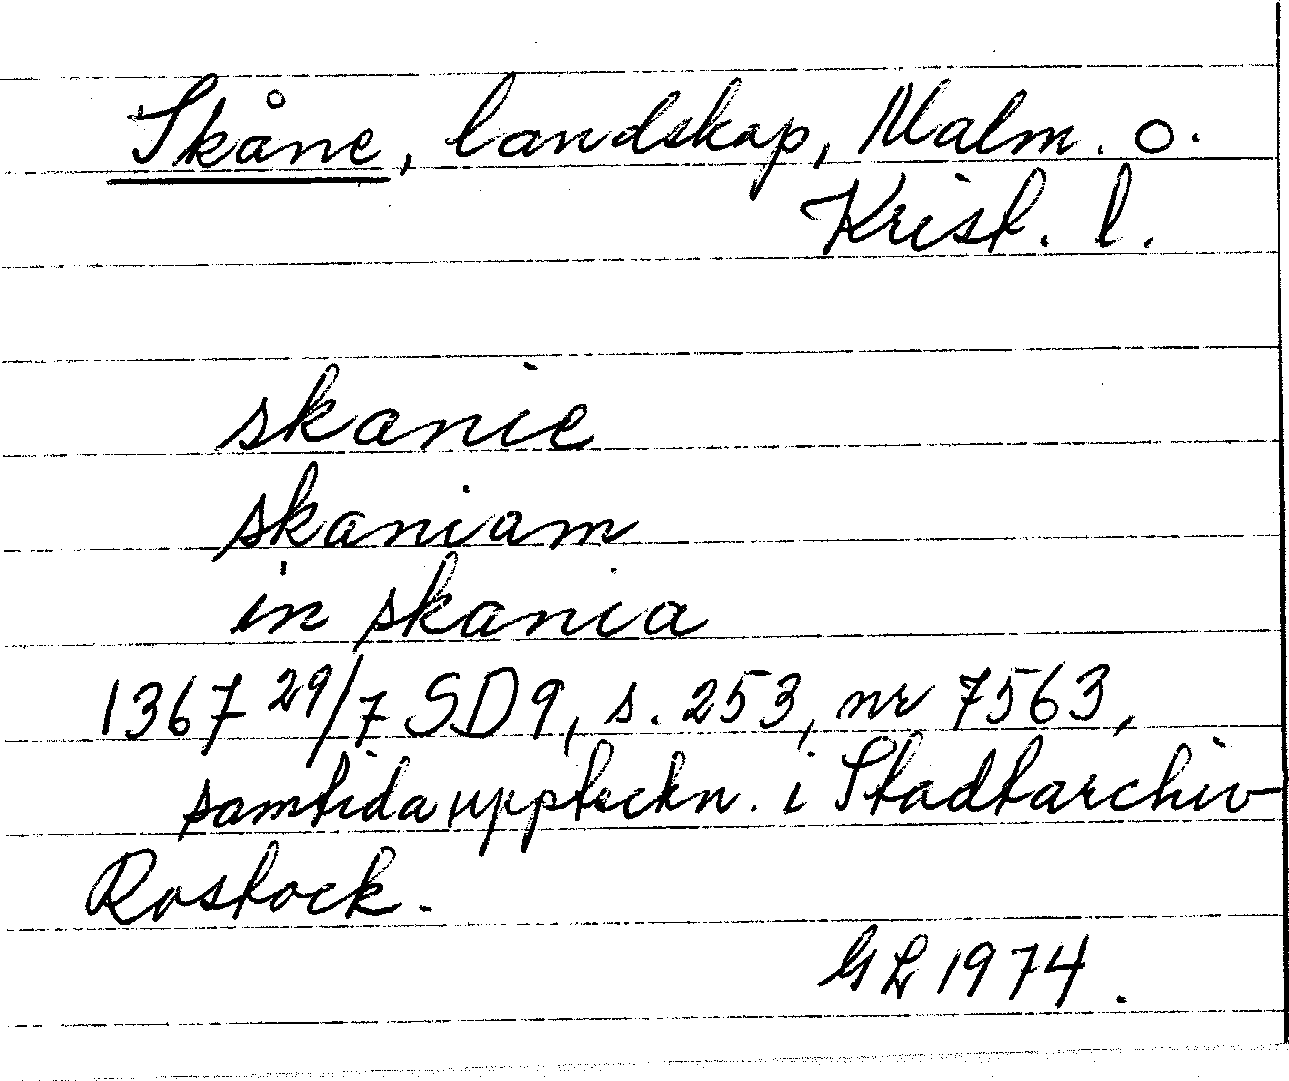 Skåne, landskap, Malm. o.
Krist. l.
skanie
skaniam
in skania
1367 29/7 SD 9, s. 253, nr 7563,
samtida uppteckn. i Stadtarchiv
Rostock.
GL 1974.